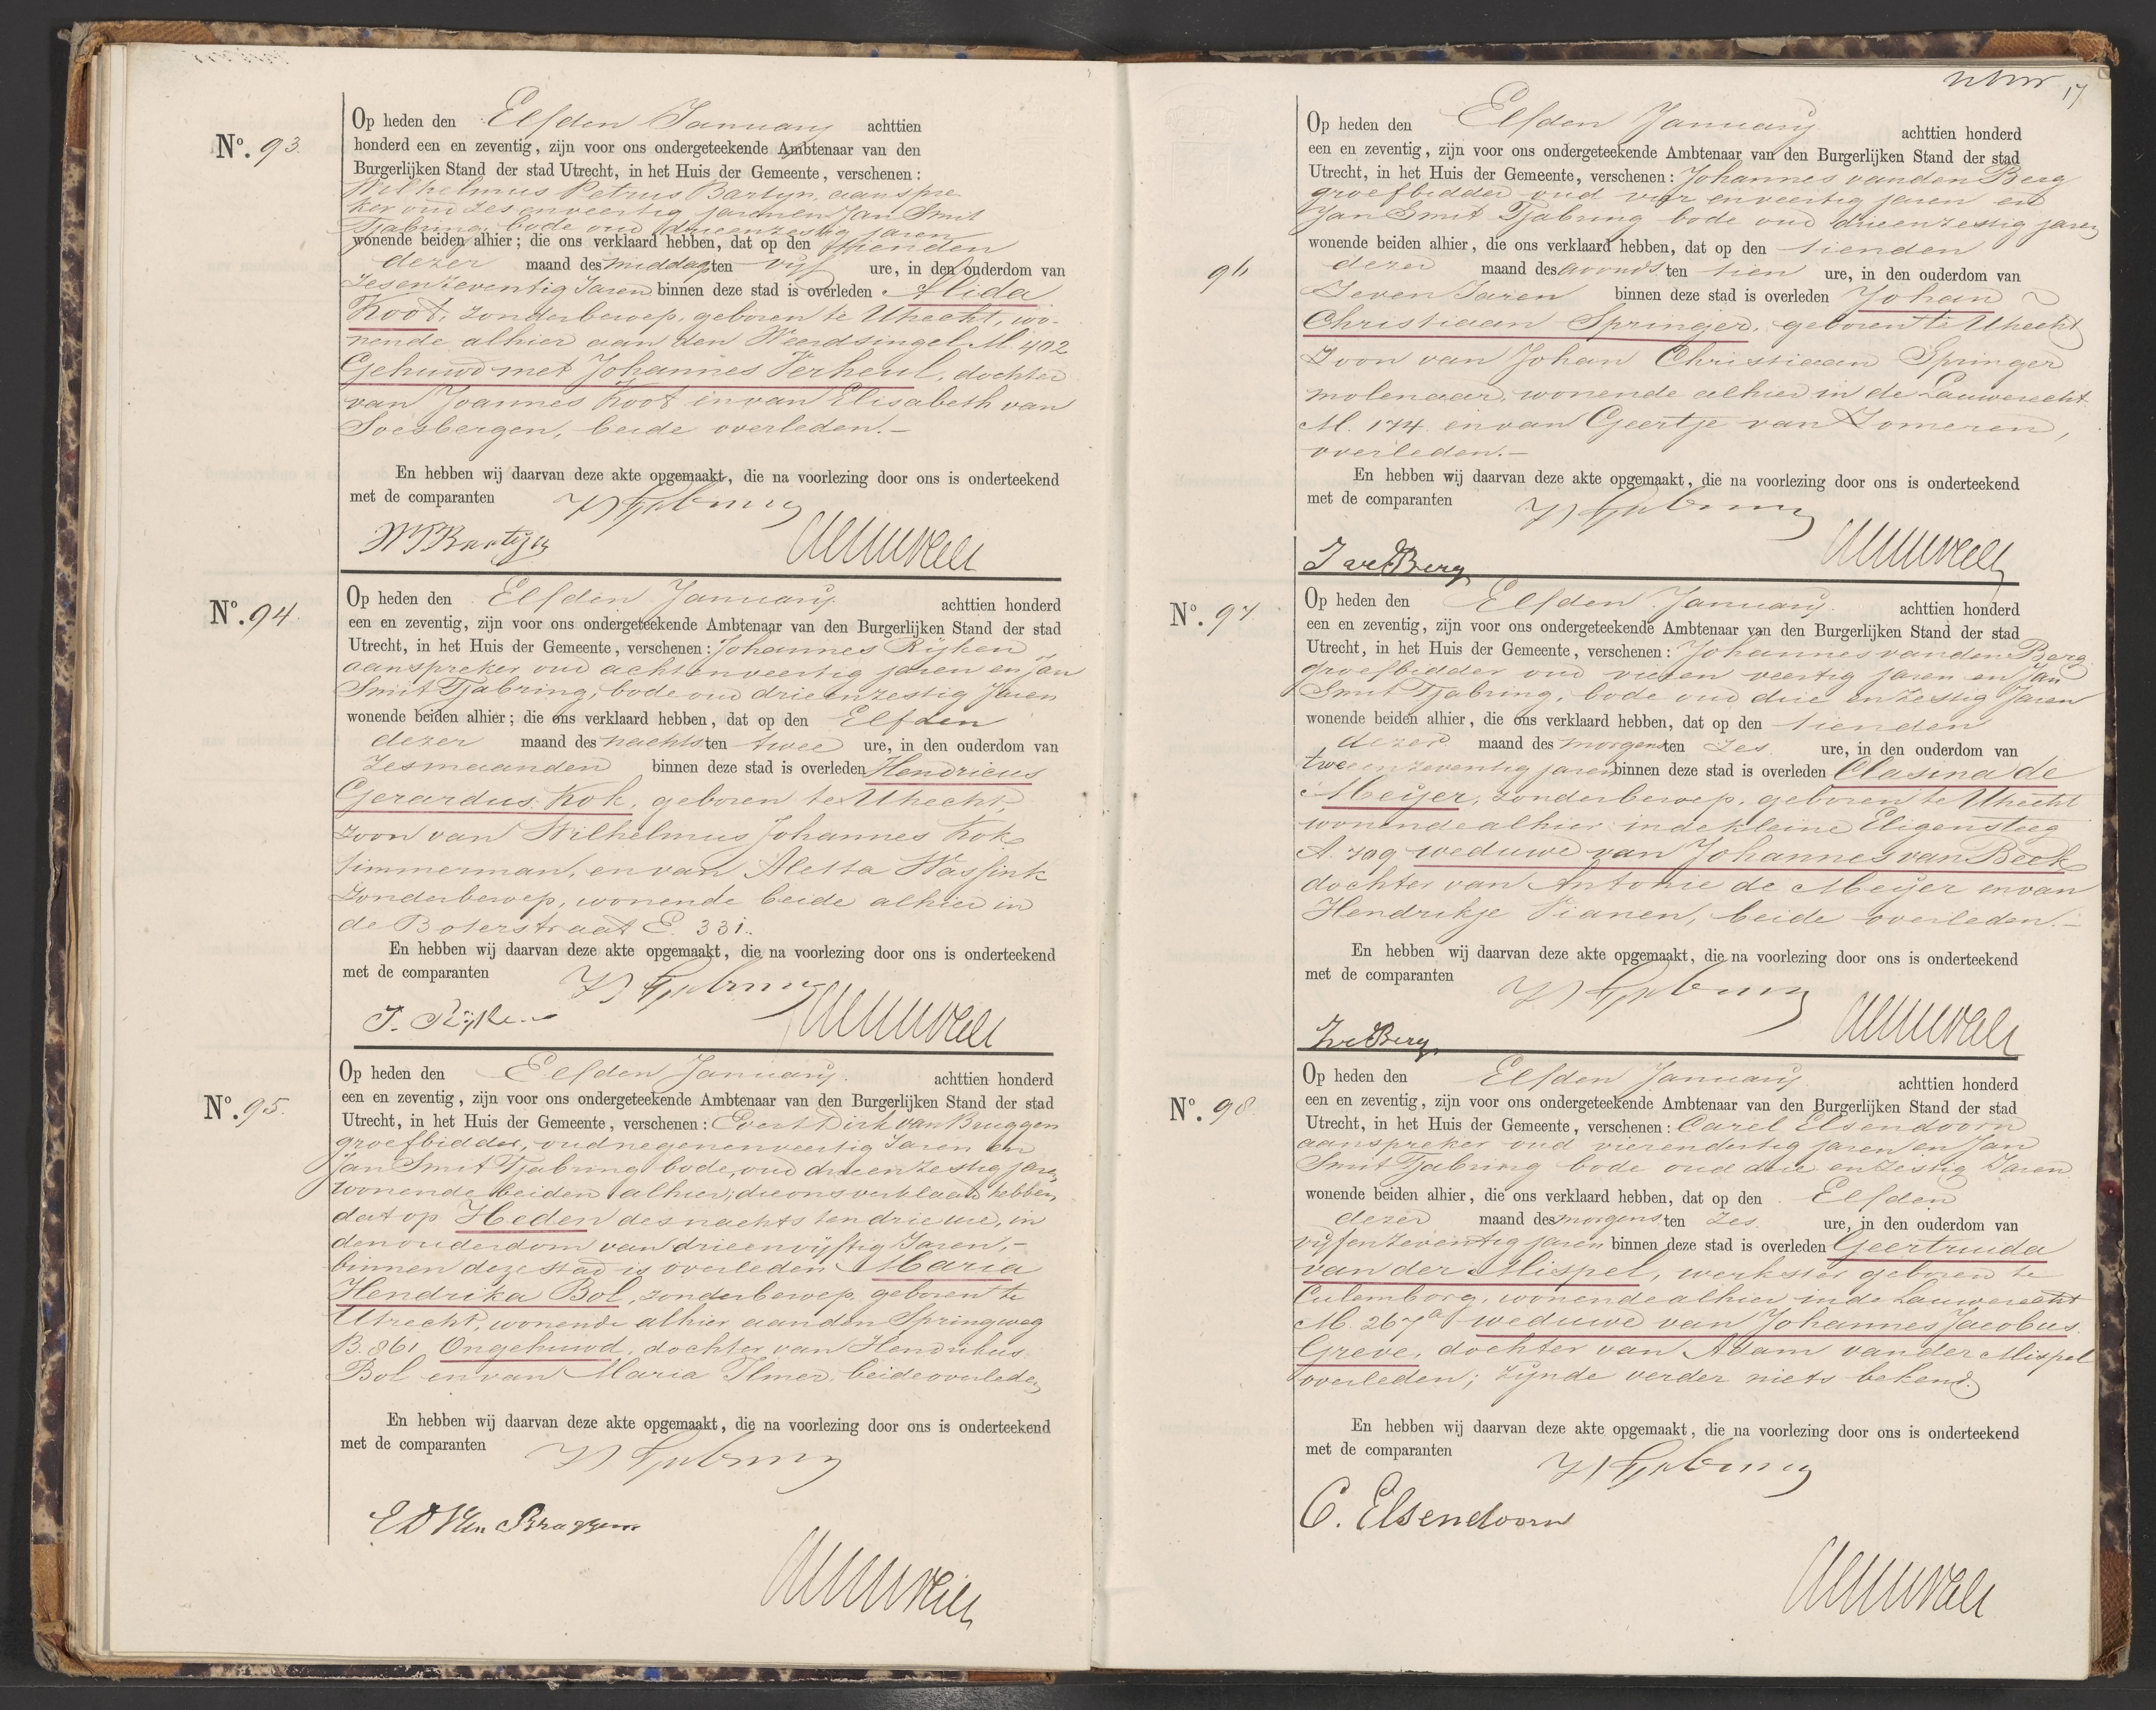 No. 93.
Op heden den Elfden January achttien
honderd een en zeventig, zijn voor ons ondergeteekende Ambtenaar van den
Burgerlijken Stand der stad Utrecht, in het Huis der Gemeente, verschenen:
Wilhelmus Petrus Bartyn, aanspre
ker oud zes en veertig jaren en Jan Smit
Tjabring, bode oud drieenzestig jaren
wonende beiden alhier; die ons verklaard hebben, dat op den tienden
dezer maand des middags ten vijf ure, in den ouderdom van
Zesenzeventig Jaren binnen deze stad is overleden Alida
Koot, zonderberoep, geboren te Utrecht, wo-
nende alhier aan den Weerdsingel M. 402
Gehuwd met Johannes Verheul, dochter
van Joannes Koot en van Elisabeth van
Soesbergen, beide overleden.-
En hebben wij daarvan deze akte opgemaakt, die na voorlezing door ons is onderteekend
met de comparanten
No. 94.
Op heden den Elfden January achttien honderd
een en zeventig, zijn voor ons ondergeteekende Ambtenaar van den Burgerlijken Stand der stad
Utrecht, in het Huis der Gemeente, verschenen: Johannes Rijken
aanspreker oud achtenveertig jaren en Jan
Smit Tjabring, bode oud drieenzestig Jaren
wonende beiden alhier; die ons verklaard hebben, dat op den Elfden
dezer maand des nachts ten twee ure, in den ouderdom van
Zesmaanden binnen deze stad is overleden Hendricus
Gerardus Kok, geboren te Utrecht,
zoon van Wilhelmus Johannes Kok
timmerman, en van Aletta Wassink
zonderberoep, wonende beide alhier in
de Boterstraat E. 331.
En hebben wij daarvan deze akte opgemaakt, die na voorlezing door ons is onderteekend
met de comparanten
J. Rijken
No. 95.
Op heden den Elfden January. achttien honderd
een en zeventig, zijn voor ons ondergeteekende Ambtenaar van den Burgerlijken Stand der stad
Utrecht, in het Huis der Gemeente, verschenen: Evert Dirk van Bruggen
groefbidder, oud negenenveertig Jaren en
Jan Smit Tjabring bode, oud drieenzestig jaren
wonende beiden alhier; die ons verklaard hebben,
dat op Heden des nachts ten drie ure, in
den ouderdom van drieenvijftig Jaren,-
binnen deze stad is overleden Maria
Hendrika Bol, zonderberoep geboren te
Utrecht, wonende alhier aan den Springweg
B. 861 Ongehuwd, dochter van Hendrikus
Bol en van Maria Ilmer, beide overleden
En hebben wij daarvan deze akte opgemaakt, die na voorlezing door ons is onderteekend
met de comparanten
E D Van Bruggen
17
96
Op heden den Elfden January achttien honderd
een en zeventig, zijn voor ons ondergeteekende Ambtenaar van den Burgerlijken Stand der stad
Utrecht, in het Huis der Gemeente, verschenen: Johannes vanden Berg
groefbidder oud vier en veertig jaren en
Jan Smit Tjabring bode oud drieenzestig jaren
wonende beiden alhier, die ons verklaard hebben, dat op den tienden
dezer maand des avonds ten tien ure, in den ouderdom van
Zeven Jaren binnen deze stad is overleden Johan
Christiaan Springer, geboren te Utrecht
Zoon van Johan Christiaan Springer
molenaar, wonende alhier in de Lauwerecht
M. 174 en van Geertje van Zomeren,
overleden.-
En hebben wij daarvan deze akte opgemaakt, die na voorlezing door ons is onderteekend
met de comparanten
J vd Berg
No. 97
Op heden den Elfden January. achttien honderd
een en zeventig, zijn voor ons ondergeteekende Ambtenaar van den Burgerlijken Stand der stad
Utrecht, in het Huis der Gemeente, verschenen: Johannes vanden Berg
groefbidder oud vieren veertig jaren en Jan
Smit Tjabring, bode oud drie en zestig Jaren
wonende beiden alhier, die ons verklaard hebben, dat op den tienden
dezer maand des morgens ten zes ure, in den ouderdom van
tweeenzeventig jaren binnen deze stad is overleden Clasina de
Meijer, zonderberoep, geboren te Utrecht
wonende alhier in de kleine Eligensteeg
A. 709 weduwe van Johannes van Beek
dochter van Antonie de Meijer en van
Hendrikje Vianen, beide overleden.-
En hebben wij daarvan deze akte opgemaakt, die na voorlezing door ons is onderteekend
met de comparanten
J vd Berg
No. 98
Op heden den Elfden January achttien honderd
een en zeventig, zijn voor ons ondergeteekende Ambtenaar van den Burgerlijken Stand der stad
Utrecht, in het Huis der Gemeente, verschenen: Carel Elsendoorn
aanspreker oud vierendertig jaren en Jan
Smit Tjabring bode oud drie en zestig Jaren
wonende beiden alhier, die ons verklaard hebben, dat op den Elfden
dezer maand des morgens ten zes ure, in den ouderdom van
vijfenzeventig jaren binnen deze stad is overleden Geertruida
van der Mispel, werkster geboren te
Culemborg, wonende alhier in de Lauwerecht
M. 267a weduwe van Johannes Jacobus
Greve, dochter van Adam vander Mispel
overleden; zijnde verder niets bekend.
En hebben wij daarvan deze akte opgemaakt, die na voorlezing door ons is onderteekend
met de comparanten
C. Elsendoorn